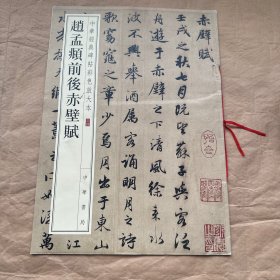 趙孟頫前後赤壁賦
中華經典碑帖彩色放大本
中華書局
赤壁賦
壬戌之秋七月既望蘇子與客泛
舟遊于赤壁之下清風徐來水
波不興舉酒屬客誦明月之詩
歌窈窕之章少焉月出于東山
江
如凌萬